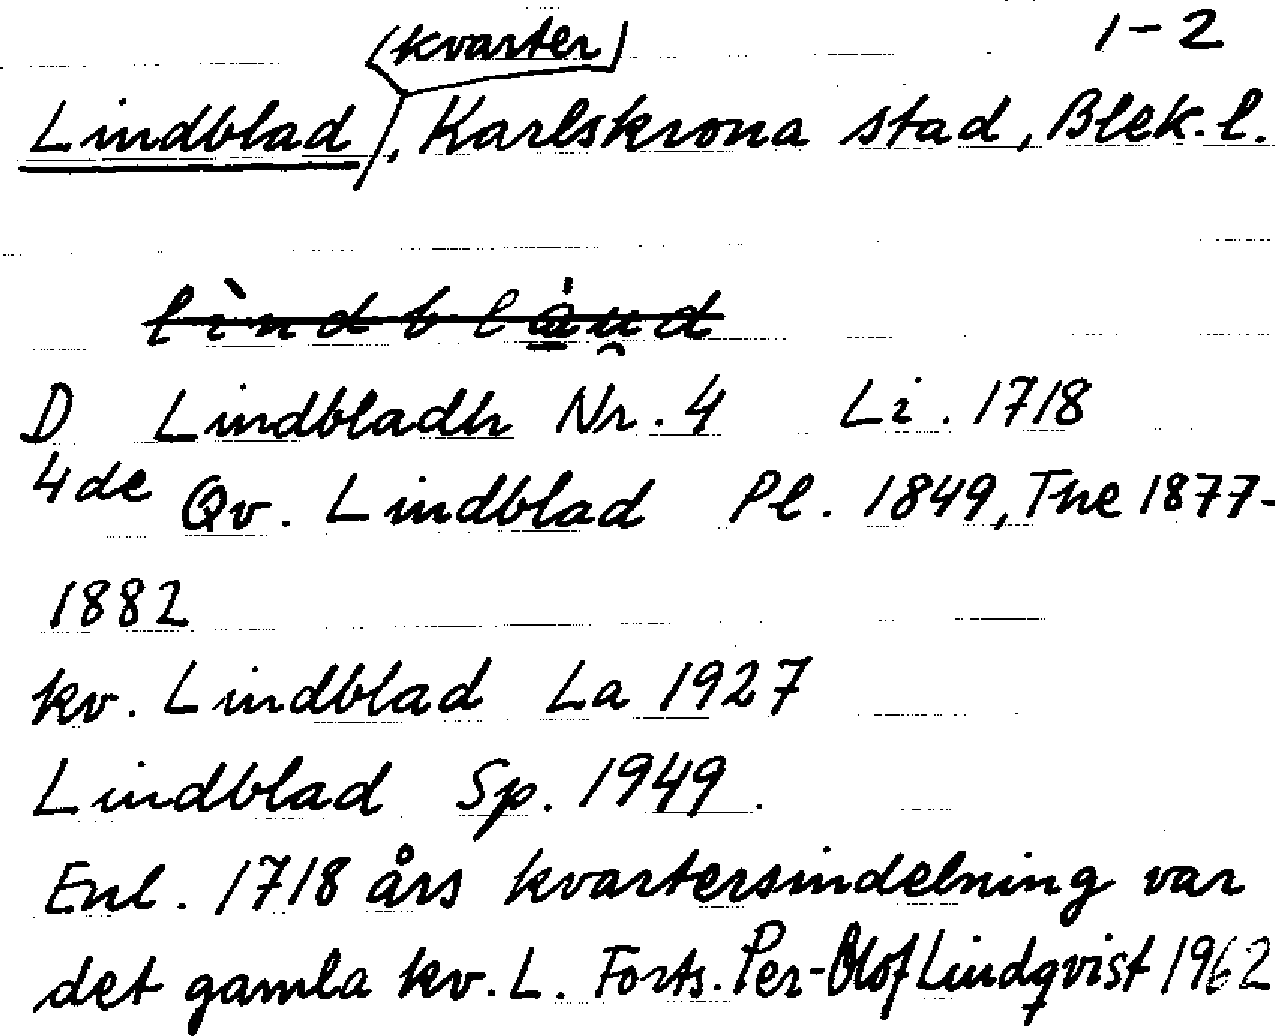 (kvarter) 1-2
Lindblad, Karlskrona stad, Blek. l.
D Lindbladh Nr. 4 Li. 1718
4de Qv. Lindblad Pl. 1849, The 1877-
1882
kv. Lindblad La 1927
Lindblad Sp. 1949.
Enl. 1718 års kvartersindelning var
det gamla kv. L. Forts. Per-Olof Lindqvist 1962